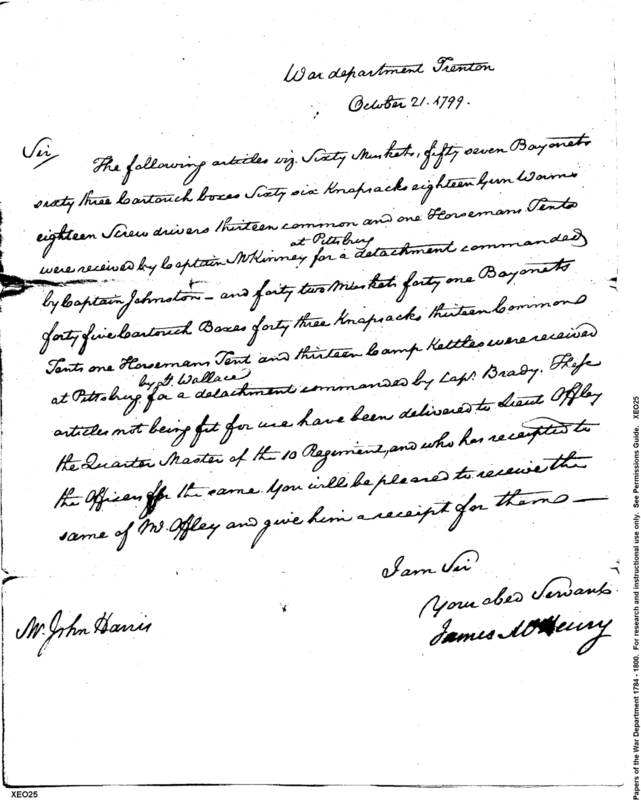 War department Trenton
October 21. 1799.
Sir/
The following articles viz. Sixty Muskets, fifty seven Bayonets
sixty three Cartouch boxes Sixty six Knapsacks eighteen Gun Worms
eighteen Screw drivers thirteen common and one Horsemans Tents
at Pittsburg
were received by Captain McKinney for a detachment commanded
by Captain Johnston — and forty two Muskets forty one Bayonets
forty five Cartouch Boxes forty three Knapsacks thirteen Common
Tents one Horsemans Tent and thirteen Camp Kettles were received
by G. Wallace
at Pittsburg for a detachment commanded by Capt. Brady. These
articles not being fit for use have been delivered to Lieut Offley
the Quarter Master of the 10 Regiment, and who has receipted to
the Officers for the same. You will be pleased to receive the
same of Mr. Offley and give him a receipt for them —
I am Sir
Your obed Servant
James McHenry
Mr. John Harris
XEO25
Papers of the War Department 1784 - 1800. For research and instructional use only. See Permissions Guide. XEO25